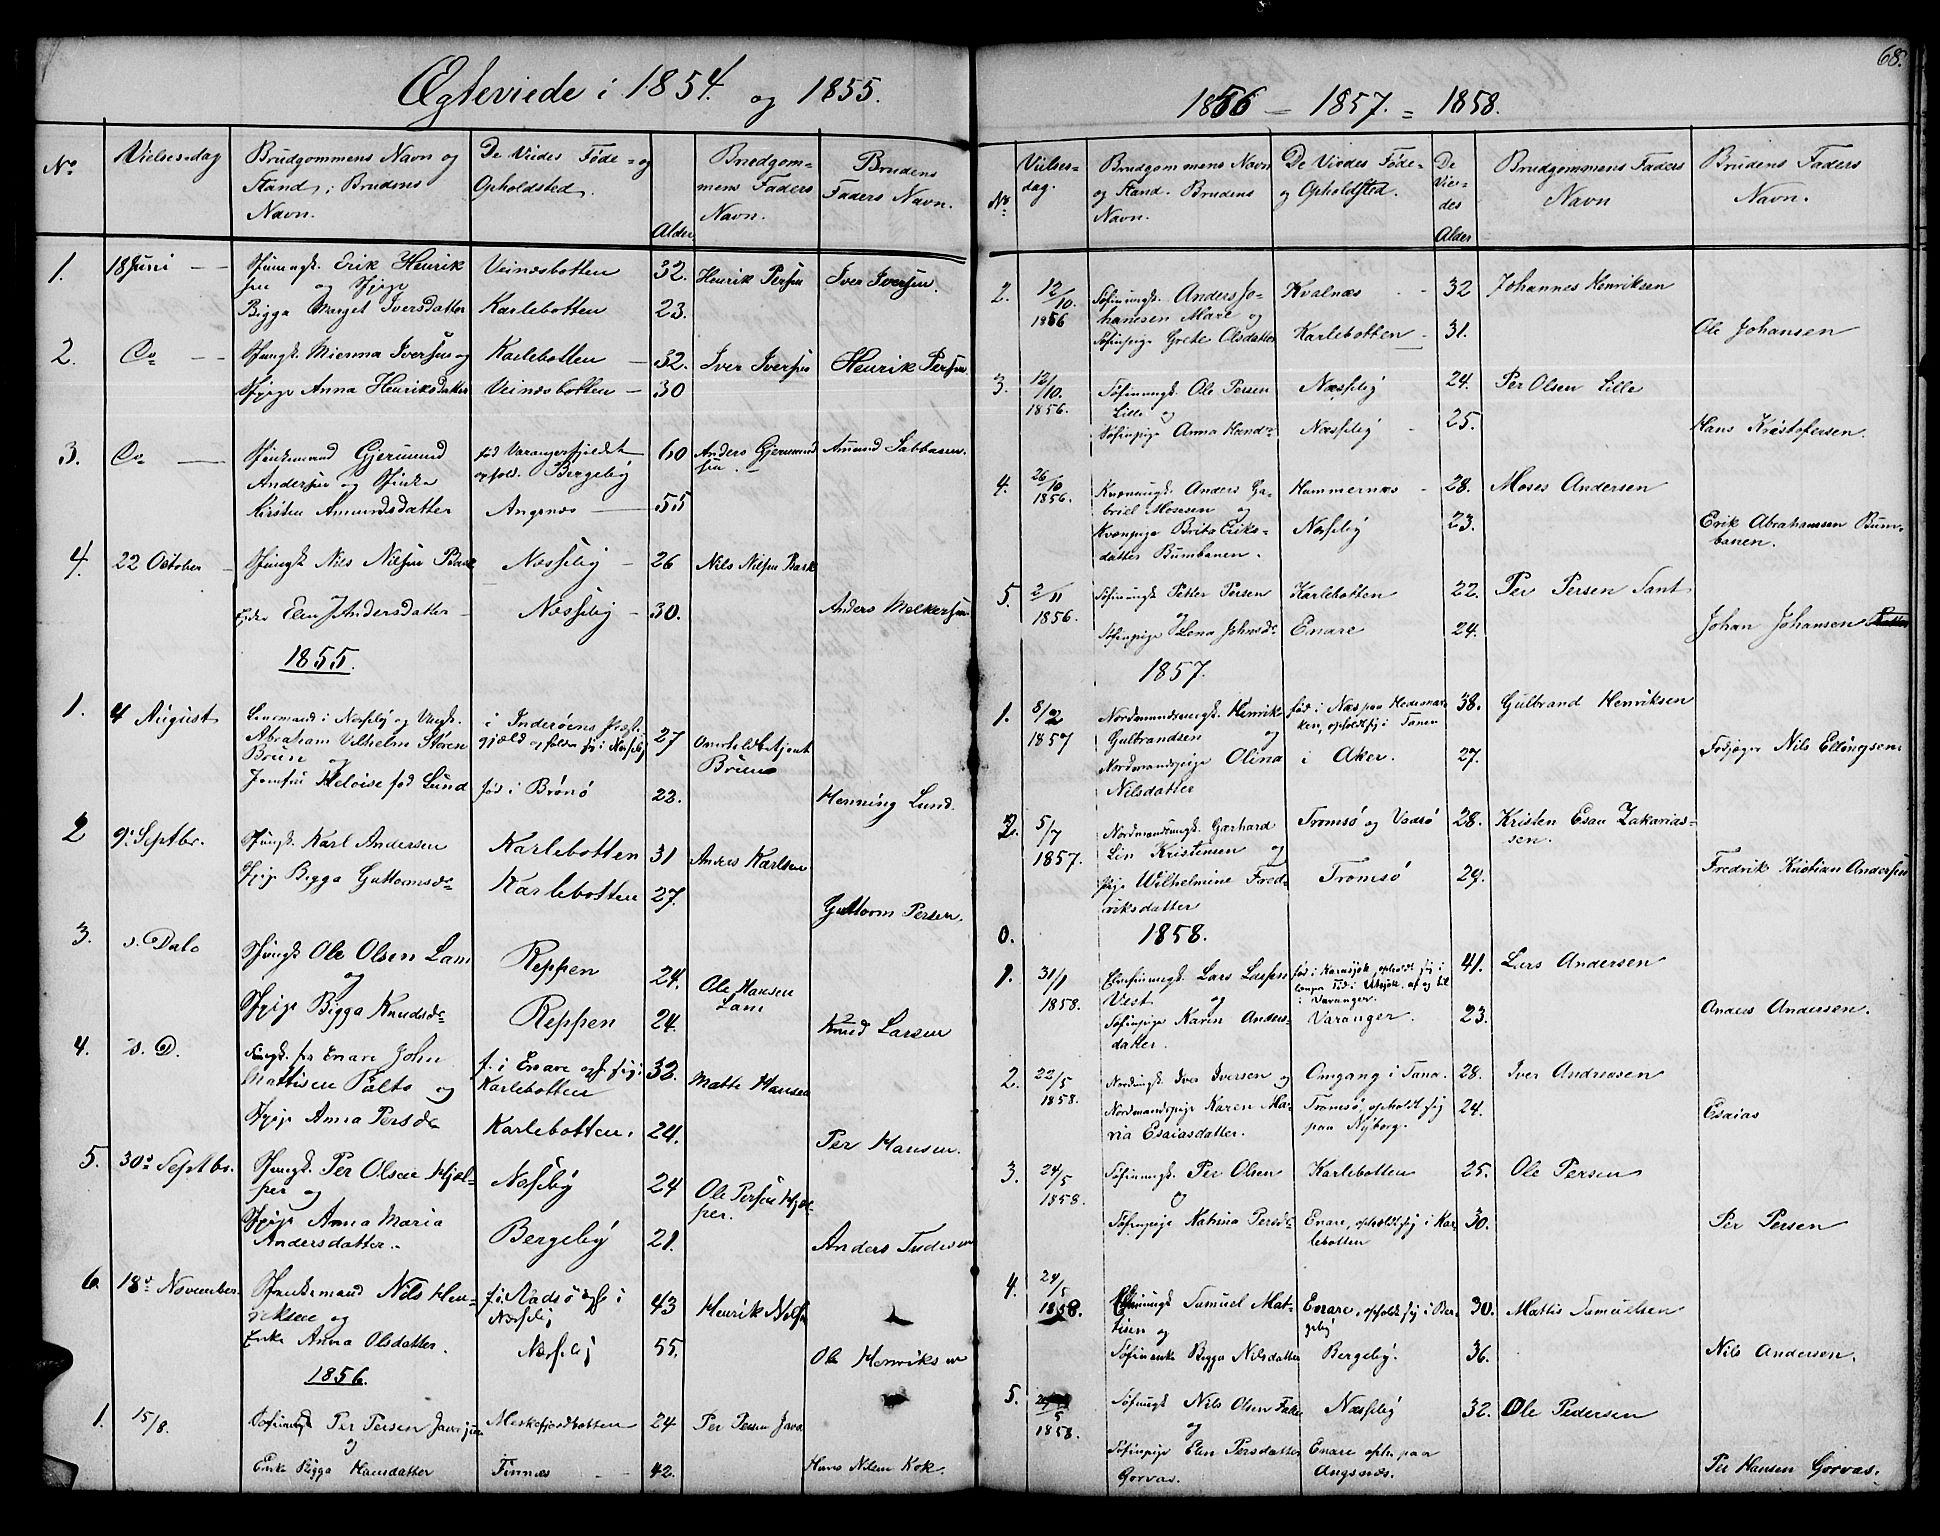 Ægteviede i 1854. og 1855.
No
Vielsesdag
Brudgommens Navn og
Stand; Brudens
Navn.
De Viedes Føde- og
Opholdsted.
Alder
Brudgom-
mens Faders
Navn.
Brudens
Faders Navn.
1. 18 Juni Erik Henrik Veinæsbotten 32. Henrik Persen Iver Iversen.
sen og
Bigga Marget Iversdatter Karlebotten 23.
2. Do Mienna Iversen og Karlebotten 32. Iver Iversen Henrik Persen
Anna Henriksdatter Veinæsbotten 30
3. Do Gjermund fød Varangerfjeldet 60 Anders Gjermund Amund Sabbasen.
Andersen og opfold. Bergeby sen
Kirsten Amundsdatter Angsnæs 55
4. 22 October Nils Nilsen Næsseby 26 Nils Nilsen Bark
Enke Elen Andersdatter Næsseby 30. Anders Melkersen
1855.
1. 4 August Lensmand i Næsseby og Ungk. i Inderøens
Abraham Vilhelm Støren gjæld 27
Brun og Brun
Jomfru Heloise fød Lund fød i Brønø 22. Henning Lund.
2 9. Septbr. Karl Andersen Karlebotten 31 Anders Karlsen
Bigga Guttormsd. Karlebotten 27. Guttorm Persen.
3. s. Dato Ole Olsen Lam Reppen 24. Ole Hansen
og Lam
Bigga Knudsd. Reppen 24. Knud Larsen
4. s. D. fra Enare John f. i Enare 32. Matte Hansen
Mattisen Palto og Karlebotten
Anna Persd. Karlebotten. 24. Per Hansen.
5. 30 Septbr. Per Olsen Hjel- Næseby 24 Ole Persen Hjel-
per og per.
Anna Maria Bergeby 21. Anders
Andersdatter.
6. 18 November. Nils Hen- f. i Vadsø i 43 Henrik Nilsen
riksen og Næsseby
Enke Anna Olsdatter. Næsseby 55. Ole Henriksen
1856.
1. 15/8. Per Persen Meskefjordbotten 24 Per Persen Java
og
Enke Bigga Hansdatter Finnes 42. Hans Nilsen Kok.
68.
1856 - 1857. = 1858.
No
Vielses-
dag.
Brudgommens Navn
og Stand. Brudens
Navn.
De Viedes Føde-
og Opholdsted.
De
Vie-
des
Alder
Brudgommens Faders
Navn
Brudens Faders
Navn.
2. 12/10. 1856 Søfinungk. Anders Jo- Kvalnæs 32 Johannes Henriksen
hannesen Mare og
Søfinpige Grete Olsdatter Karlebotten 31. Ole Johansen
3. 12/10. 1856. Søfinungk. Ole Persen Næsseby 24. Per Olsen Lille
Lille og
Søfinpige Anna Næsseby 25. Hans Kristofersen.
4. 26/10 1856. Kvænungk. Anders Ga- Hammernæs 28. Moses Andersen
briel Mosesen og
Kvænpige Brita Eriks- Næsseby 23. Erik Abrahamsen Bum-
datter Bumbanen. banen.
5. 2/11 1856. Søfinungk Petter Persen Karlebotten 22. Per Persen Sant
og
Søfinpige Lena Johnsd. Enare 24. Johan Johansen
1857.
1. 8/2 1857 Nordmandsungk. Henrik fød i Næs paa Hedemar- 38. Gulbrand Henriksen
Gulbrandsen og ken, opholdt sig i Tanen
Nordmandspige Olina i Aker. 27. Nils Ellingsen.
Nilsdatter
2. 5/7 1857. Nordmandsungk. Gerhard Tromsø og Vadsø 28. Kristen Esau Zakarias-
Lin Kristensen og sen.
pige Wilhelmine Fred- Tromsø 29. Fredrik Kristian Andersen
riksdatter
0. 1858.
1. 31/1 1858. Lars Larsen fød i Karasjok, opholdt sig i 41. Lars Andersen
Vest og længre Tid i Utsjok, af og til
i Varanger.
Søfinpige Karen Anders- Varanger. 23. Anders Andersen.
datter.
2. 22/5 1858. Nordungk. Iver Iversen og Omgang i Tana 28. Iver Andreasen
Nordmandspige Karen Ma- Tromsø, opholdt sig 24. Esaias
ria Esaiasdatter. paa Nyborg.
3. 24/5 1858. Søfinungk. Per Olsen Karlebotten 25. Ole Persen
og
Søfinpige Persd. Enare, opholdt sig i Kar- 30. Per Persen
lebotten
4. 24/5 1858. Samuel Mat- Enare, opholdt sig i Ber- 30. Mattis Samuelsen
tisen og geby
Søfinenke Bigga Nilsdatter Bergeby. 36. Nils Andersen.
5. 5 1858. Søfinungk Nils Olsen Næsseby 32. Ole Pedersen
og
Søfinpige Elen Persdatter Enare paa
Gorvas. Angsnæs. Per Hansen Gorvas.